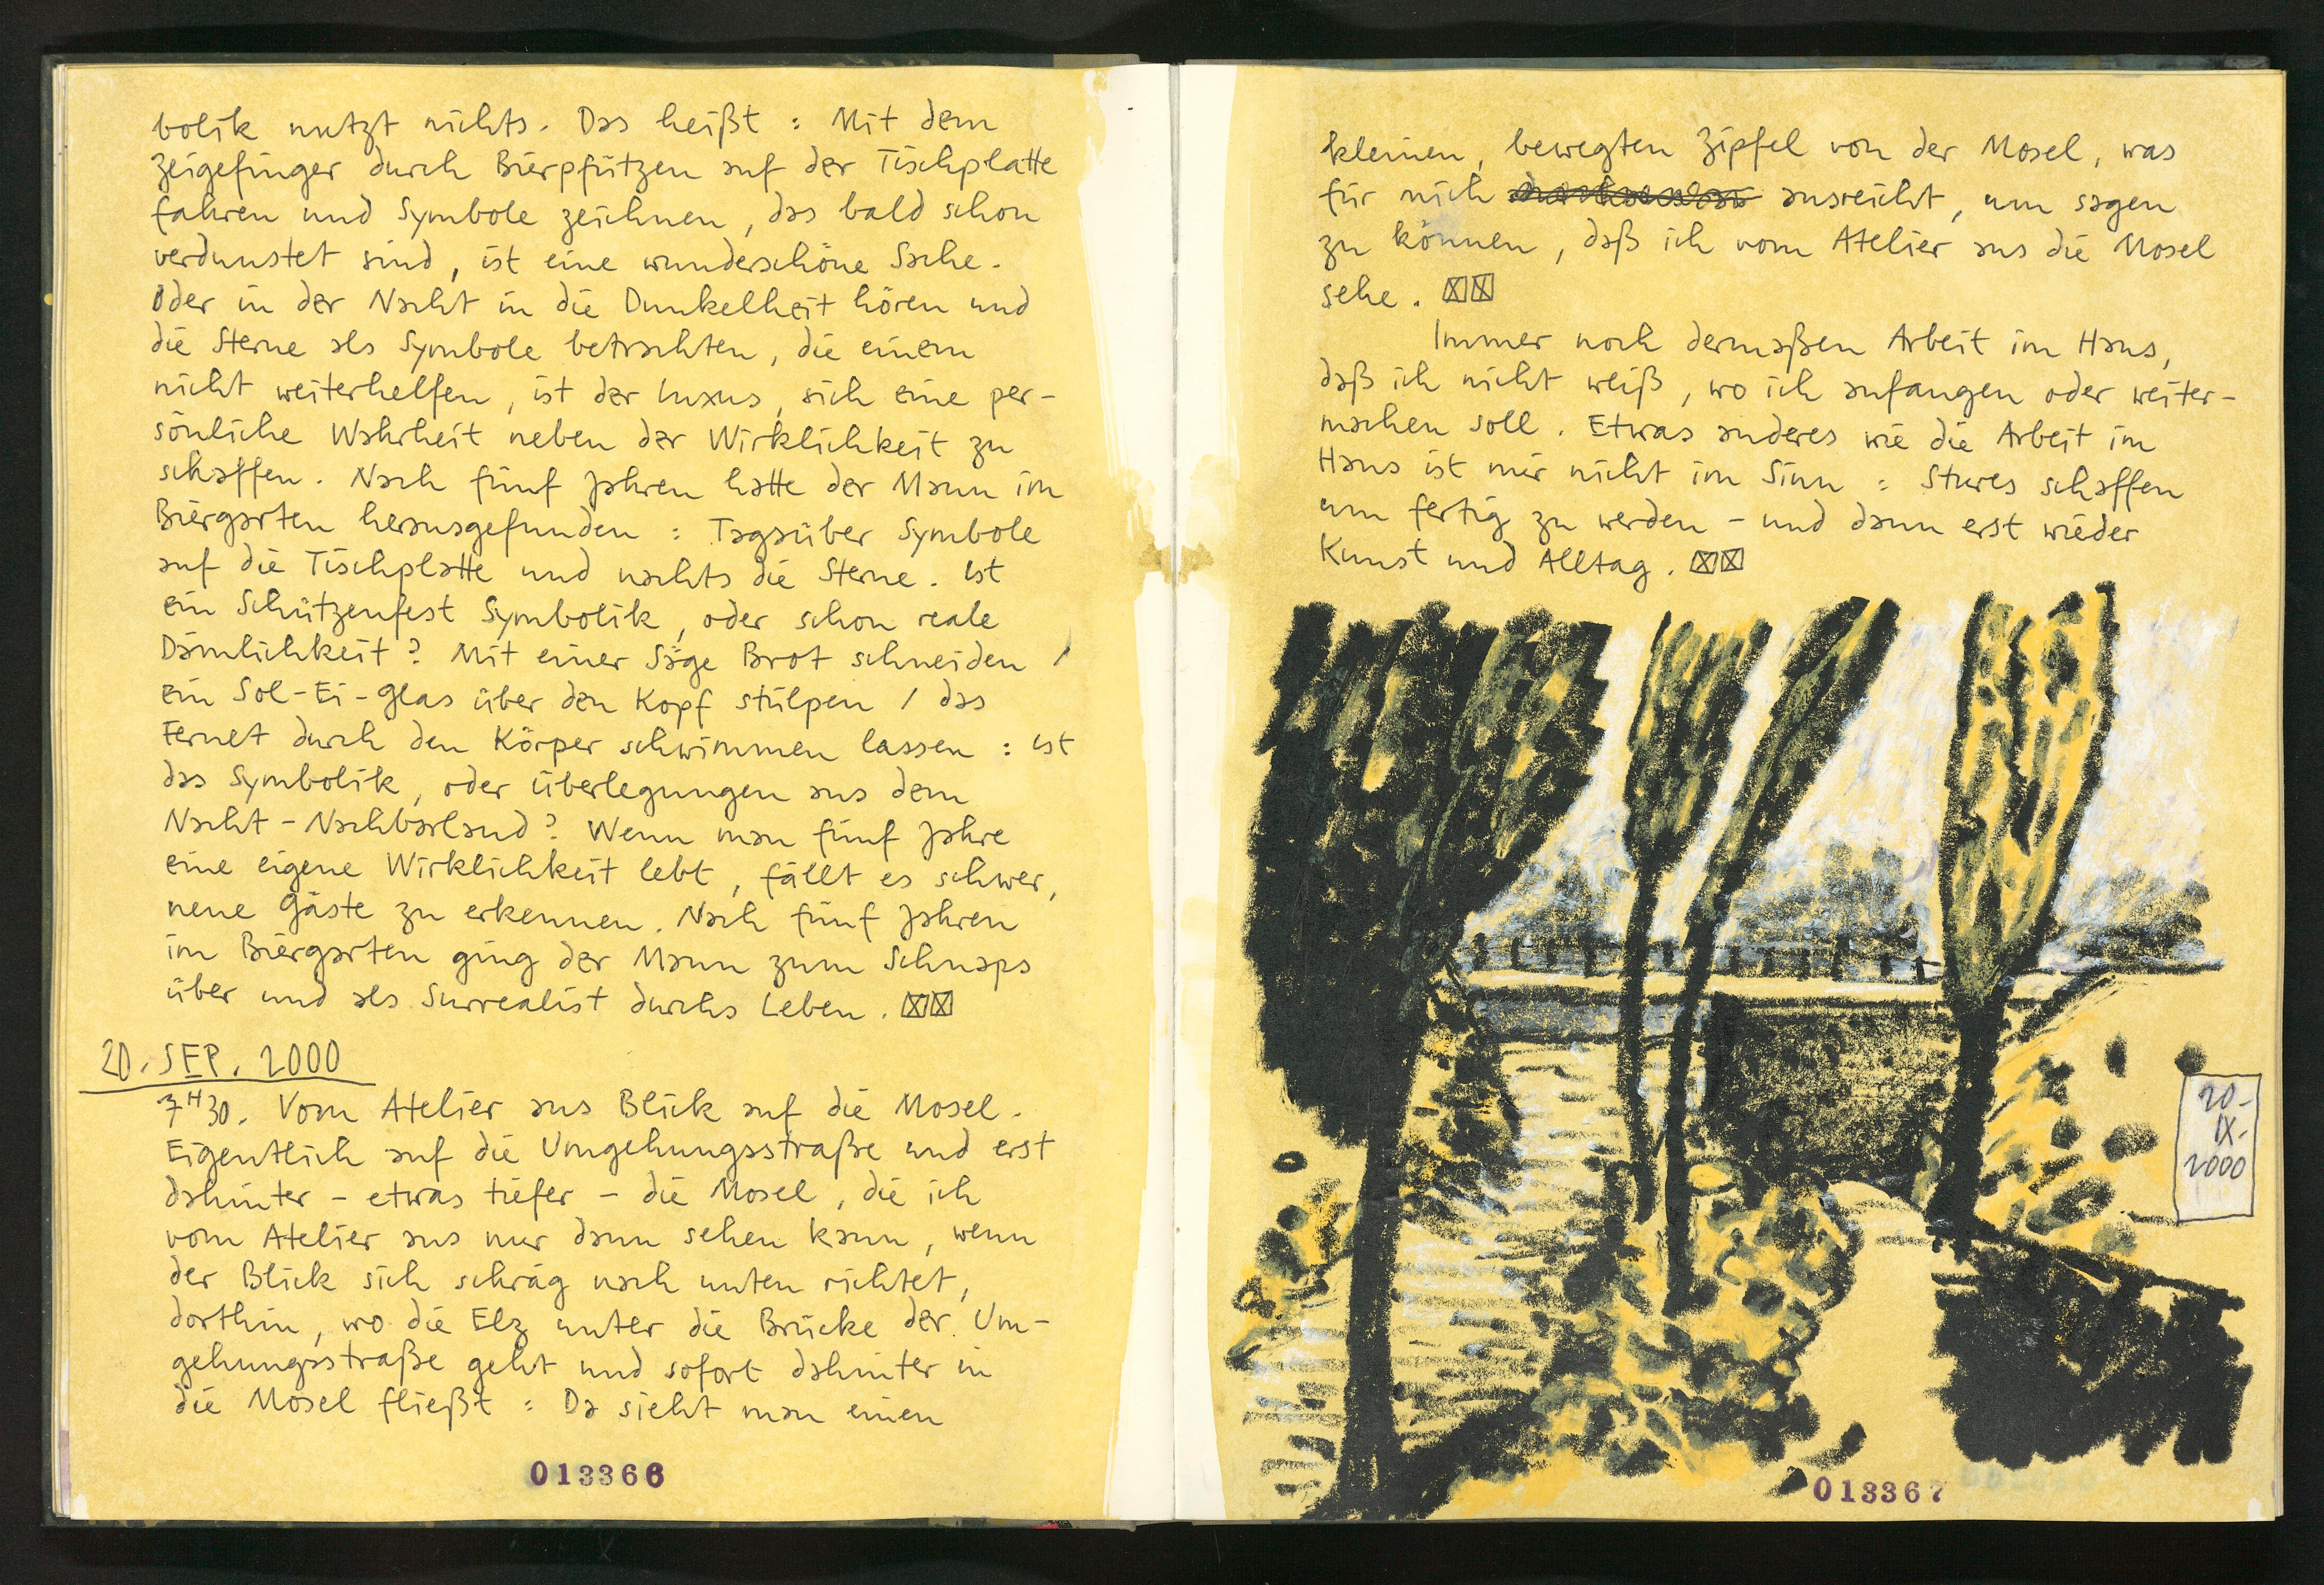 bolik nutzt nichts. Das heißt : Mit dem
Zeigefinger durch Bierpfützen auf der Tischplatte
fahren und Symbole zeichnen, das bald schon
verdunstet sind, ist eine wunderschöne Sache.
Oder in der Nacht in die Dunkelheit hören und
die Sterne als Symbole betrachten, die einem
nicht weiterhelfen, ist der Luxus, sich eine per-
sönliche Wahrheit neben der Wirklichkeit zu
schaffen. Nach fünf Jahren hatte der Mann im
Biergarten herausgefunden : Tagsüber Symbole
auf die Tischplatte und nachts die Sterne. Ist
ein Schützenfest Symbolik, oder schon reale
Dämlichkeit? Mit einer Säge Brot schneiden /
ein Sol-Ei-Glas über den Kopf stülpen / das
Fernet durch den Körper schwimmen lassen : ist
das Symbolik, oder Überlegungen aus dem
Nacht-Nachbarland? Wenn man fünf Jahre
eine eigene Wirklichkeit lebt, fällt es schwer,
neue Gäste zu erkennen. Nach fünf Jahren
im Biergarten ging der Mann zum Schnaps
über und als Surrealist durchs Leben.
20. SEP. 2000
7H30. Vom Atelier aus Blick auf die Mosel.
Eigentlich auf die Umgehungsstraße und erst
dahinter - etwas tiefer - die Mosel, die ich
vom Atelier aus nur dann sehen kann, wenn
der Blick sich schräg nach unten richtet,
dorthin, wo die Elz unter die Brücke der Um-
gehungsstraße geht und sofort dahinter in
die Mosel fließt : Da sieht man einen
013366
kleinen, bewegten Zipfel von der Mosel, was
für mich ausreicht, um sagen
zu können, daß ich vom Atelier aus die Mosel
sehe.
Immer noch dermaßen Arbeit im Haus,
daß ich nicht weiß, wo ich anfangen oder weiter-
machen soll. Etwas anderes wie die Arbeit im
Haus ist mir nicht im Sinn : Stures schaffen
um fertig zu werden - und dann erst wieder
Kunst und Alltag.
20-
IX-
2000
013367